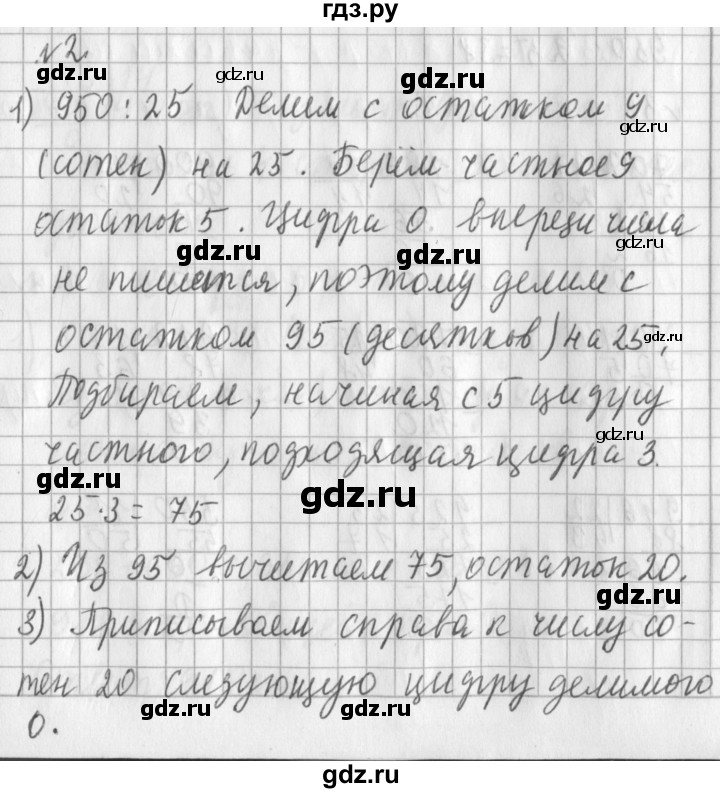 гдз.ру
№2
gdz.ru gdz.ru gdz.ru
1) 950 : 25 Делим с остатком 9
gdz.ru
(сотен) на 25. Берём частное 9
остаток 5. Цифра 0 впереди числа
gdz.ru gdz.ru gdz.ru
не пишется, поэтому делим с
остатком 95 (десятков) на 25.
gdz.ru
Подбираем, начиная с 5 цифру
gdz.ru
частного, подходящая цифра 3.
gdz.ru
25·3 = 75
2) Из 95 вычитаем 75, остаток 20.
gdz.ru
3) Приписываем справа к числу со-
тен 20 следующую цифру делимого
gdz.ru gdz.ru
0.
gdz.ru